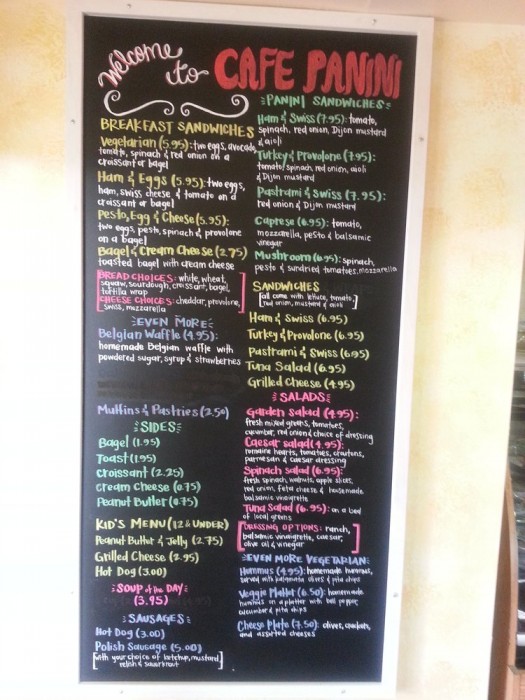 Welcome to CAFE PANINI
BREAKFAST SANDWICHES
Vegetarian (5.95): two eggs, avocado,
tomato, spinach & red onion on a
croissant or bagel
Ham & Eggs (5.95): two eggs,
ham, swiss cheese & tomato on a
croissant or bagel
Pesto, Egg & Cheese (5.95):
two eggs, pesto, spinach & provolone
on a bagel
Bagel & Cream Cheese (2.75)
toasted bagel with cream cheese
BREAD CHOICES: white, wheat,
squaw, sourdough, croissant, bagel,
tortilla wrap
CHEESE CHOICES: cheddar, provolone,
swiss, mozzarella
EVEN MORE
Belgian Waffle (4.95):
homemade Belgian waffle with
powdered sugar, syrup & strawberries
Muffins & Pastries (2.50)
SIDES
Bagel (1.95)
Toast (1.95)
Croissant (2.25)
Cream Cheese (0.75)
Peanut Butter (0.75)
KID'S MENU (12 & UNDER)
Peanut Butter & Jelly (2.75)
Grilled Cheese (2.95)
Hot Dog (3.00)
SOUP of the DAY
(3.95)
SAUSAGES
Hot Dog (3.00)
Polish Sausage (5.00)
with your choice of ketchup, mustard,
relish & sauerkraut
PANINI SANDWICHES
Ham & Swiss (7.95): tomato,
spinach, red onion, Dijon mustard
& aioli
Turkey & Provolone (7.95):
tomato, spinach, red onion, aioli
& Dijon mustard
Pastrami & Swiss (7.95):
red onion & Dijon mustard
Caprese (6.95): tomato,
mozzarella, pesto & balsamic
vinegar
Mushroom (6.95): spinach,
pesto & sundried tomatoes, mozzarella
SANDWICHES
all come with lettuce, tomato,
red onion, mustard & aioli
Ham & Swiss (6.95)
Turkey & Provolone (6.95)
Pastrami & Swiss (6.95)
Tuna Salad (6.95)
Grilled Cheese (4.95)
SALADS
Garden Salad (4.95):
fresh mixed greens, tomatoes,
cucumber, red onion & choice of dressing
Caesar Salad (4.95):
romaine hearts, tomatoes, croutons,
parmesan & caesar dressing
Spinach Salad (6.95):
fresh spinach, walnuts, apple slices,
red onion, feta cheese & homemade
balsamic vinaigrette
Tuna Salad (6.95): on a bed
of local greens
DRESSING OPTIONS: ranch,
balsamic vinaigrette, caesar,
olive oil & vinegar
EVEN MORE VEGETARIAN
Hummus (4.95): homemade hummus,
served with kalamata olives & pita chips
Veggie Platter (6.50): homemade
hummus on a platter with bell pepper,
cucumber & pita chips
Cheese Plate (7.50): olives, crackers,
and assorted cheeses